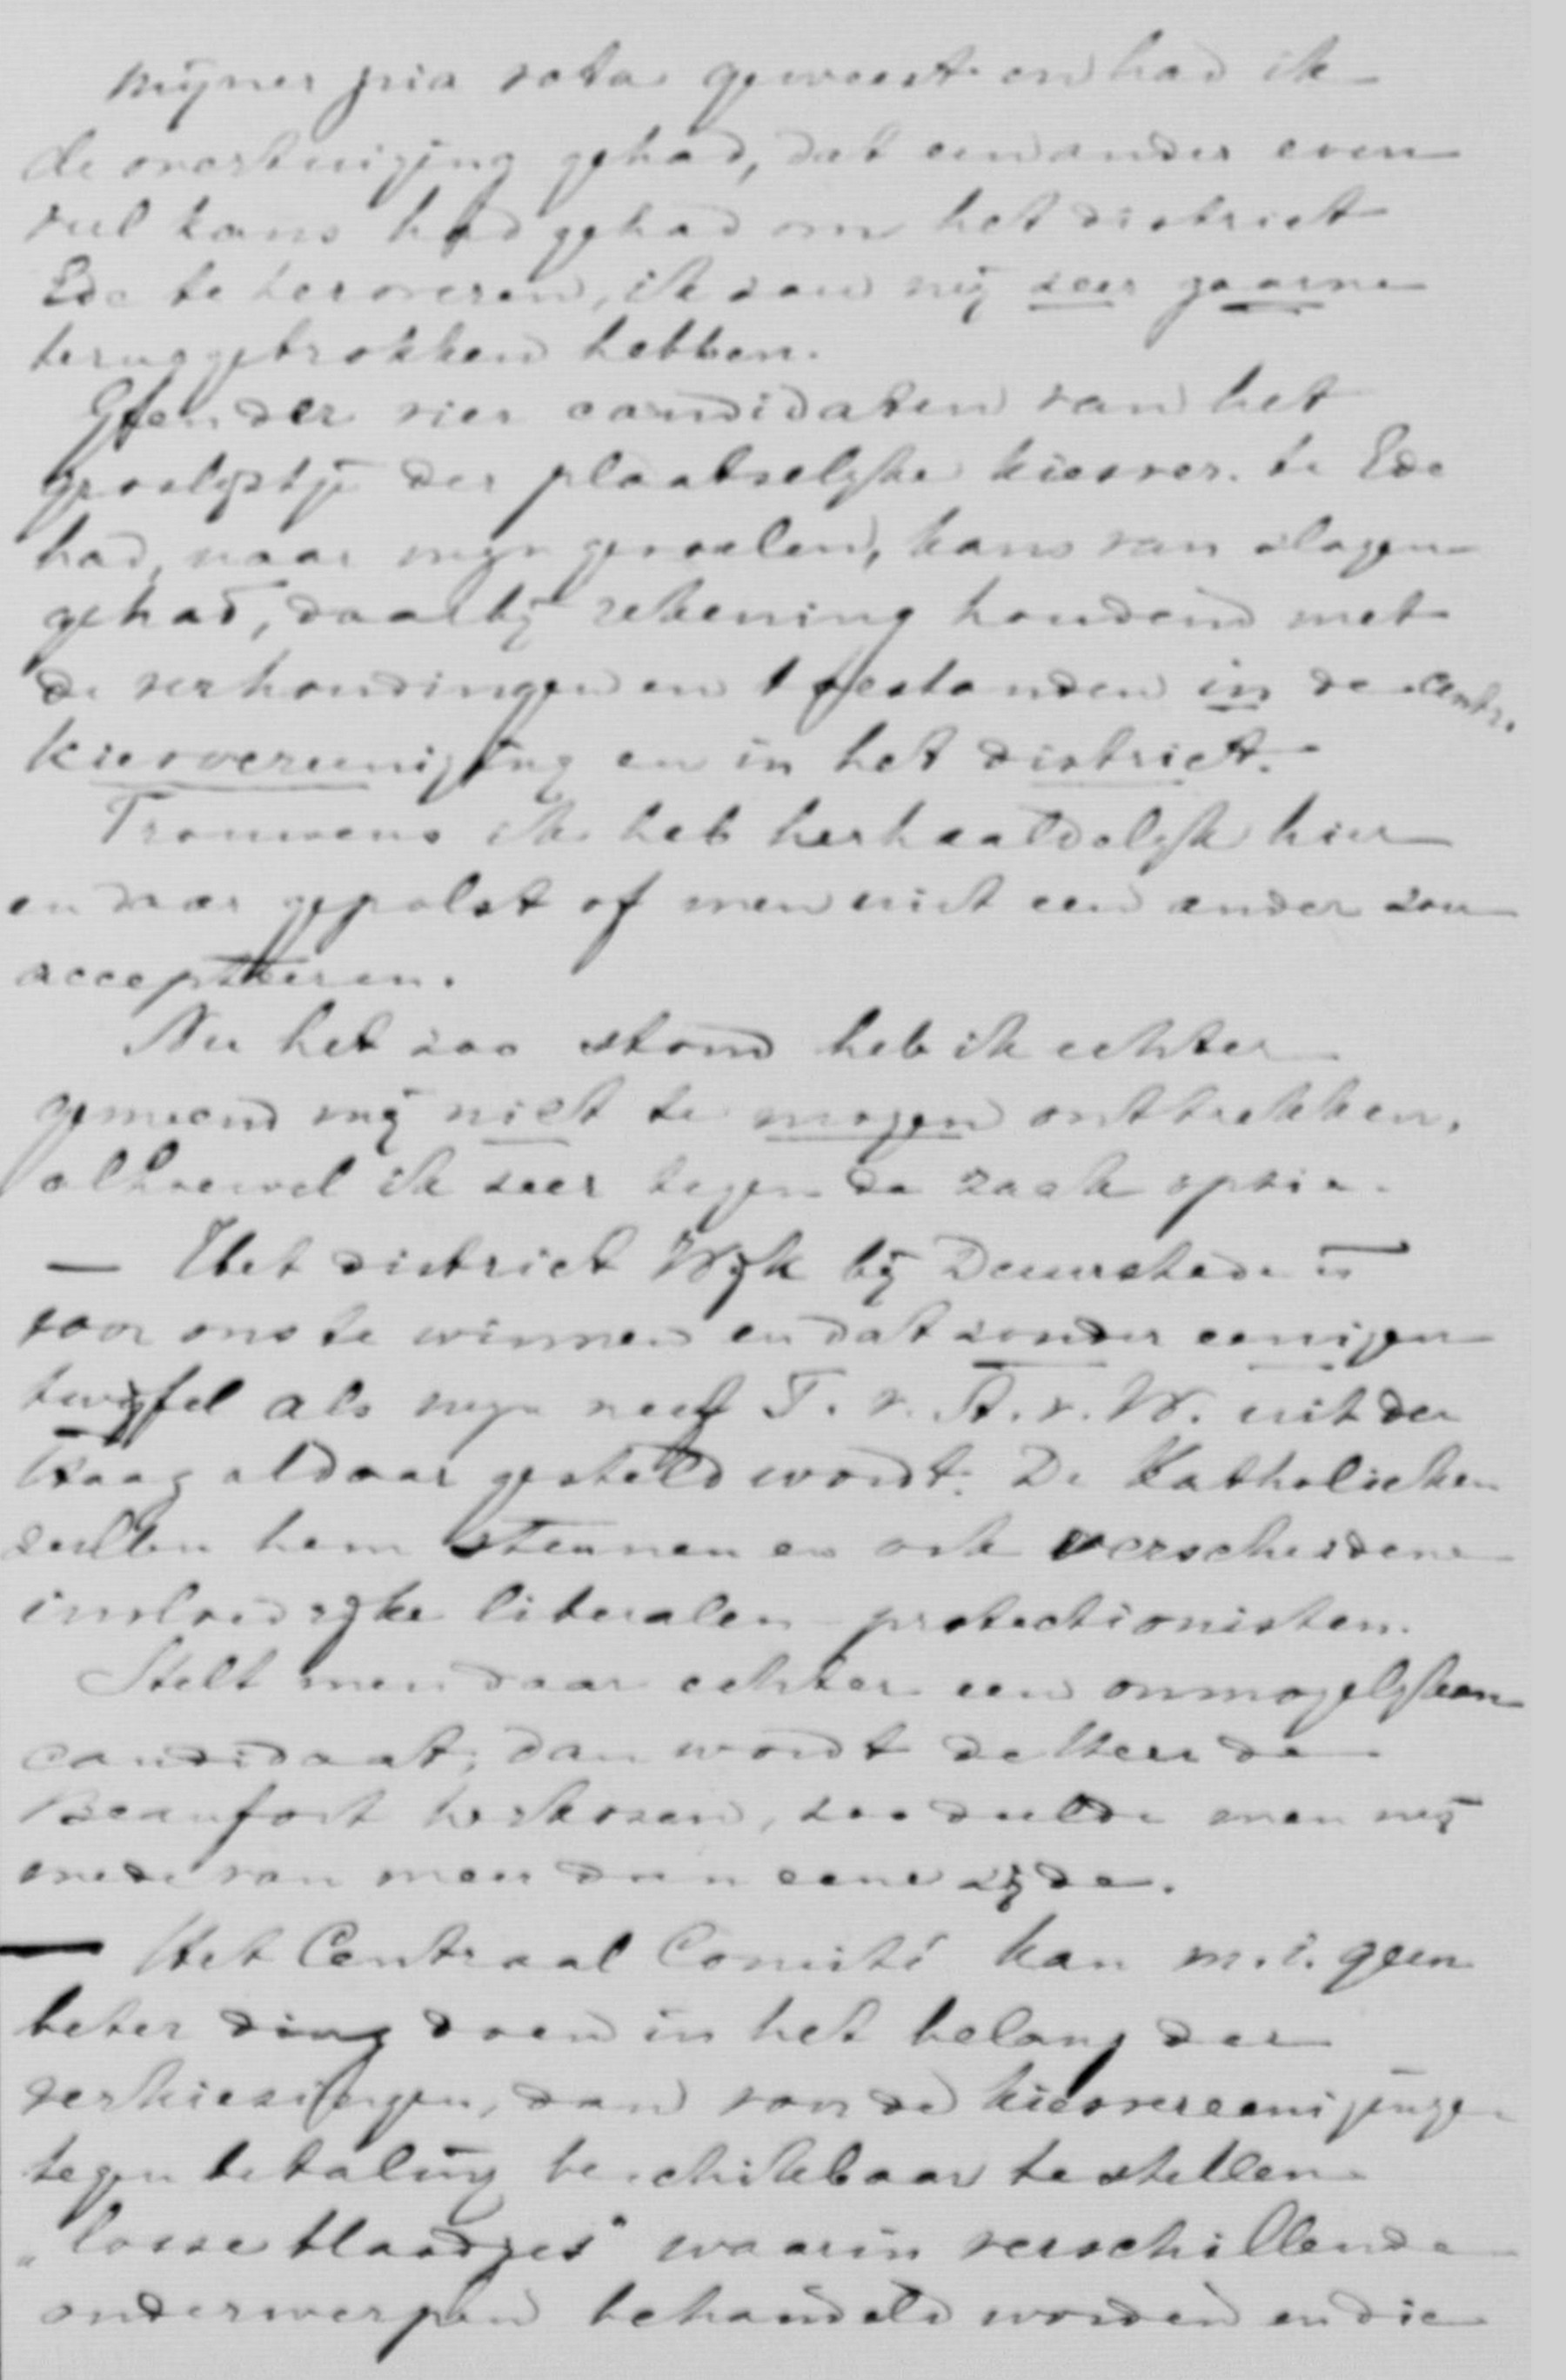 mijner pia vota geweest en had ik
de overtuiging gehad, dat een ander even
veel kans had gehad om het district
Ede te heroveren, ik zou mij zeer gaarne
teruggetrokken hebben.
Geen der vier candidaten van het
groslijstje der plaatselijke kiesver. te Ede
had, naar mijn gevoelen, kans van slagen
gehad, daarbij rekening houdend met
de verhoudingen en toestanden in de centr.
kiesvereeniging en in het district.
Trouwens ik heb herhaaldelijk hier
en daar gepolst of men niet een ander zou
accepteeren.
Nu het zoo stond heb ik echter
gemeend mij niet te mogen onttrekken,
alhoewel ik zeer tegen de zaak opzie.
— Het district Wijk bij Duurstede is
voor ons te winnen en dat zonder eenigen
twijfel als mijn neef T. v. A. v. W. uit den
Haag aldaar gesteld wordt. De Katholieken
zullen hem steunen en ook verscheidene
invloedrijke liberalen - protectionisten.
Stelt men daar echter een onmogelijken
candidaat, dan wordt de Heer de
Beaufort herkozen, zoo deelde men mij
mede van meer dan eene zijde.
— Het Centraal Comité kan m.i. geen
beter ding doen in het belang der
verkiezingen, dan voor de kiesvereenigingen
tegen betaling beschikbaar te stellen
„losse blaadjes" waarin verschillende
onderwerpen behandeld worden en die